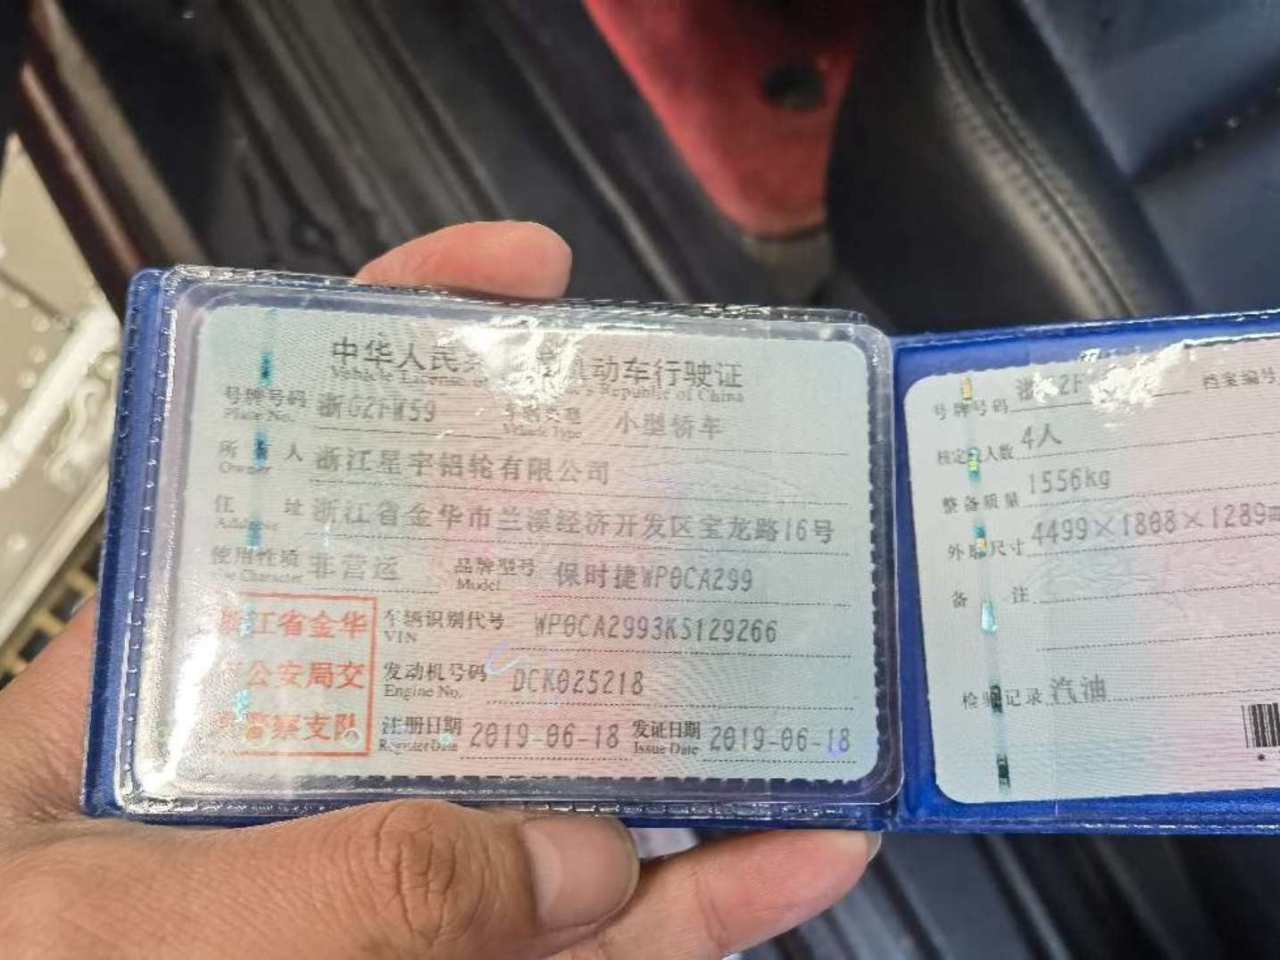 中华人民共和国机动车行驶证
Vehicle License of the People's Republic of China
号牌号码 浙GZFW59 车辆类型 小型轿车
Plate No. Vehicle Type
所 有 人 浙江星宇铝轮有限公司
Owner
住 址 浙江省金华市兰溪经济开发区宝龙路16号
Address
使用性质 非营运 品牌型号 保时捷WP0CA299
Use Character Model
浙江省金华
市公安局交
通警察支队
车辆识别代号 WP0CA2993KS129266
VIN
发动机号码 DCK025218
Engine No.
注册日期 2019-06-18 发证日期 2019-06-18
Register Date Issue Date
号牌号码 浙 2F 档案编号
核定载人数 4人
整备质量 1556kg
外廓尺寸 4499×1808×1289
备 注
检验记录 汽油
*